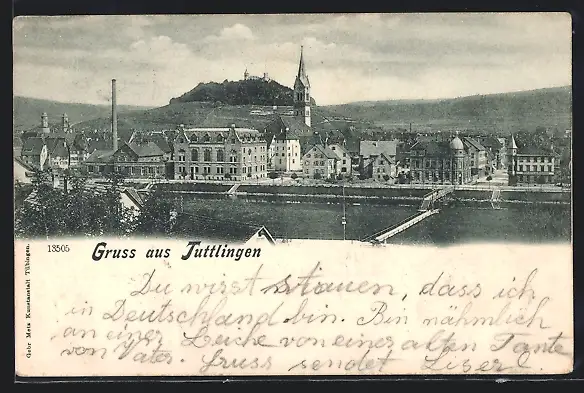 13505 Gruss aus Tuttlingen
Gebr Metz Kunstanstalt Tübingen.
Du wirst staunen, dass ich
in Deutschland bin. Bin nähmlich
an einer Leiche von einer alten Tante
von Vater. Gruss sendet Liserl.